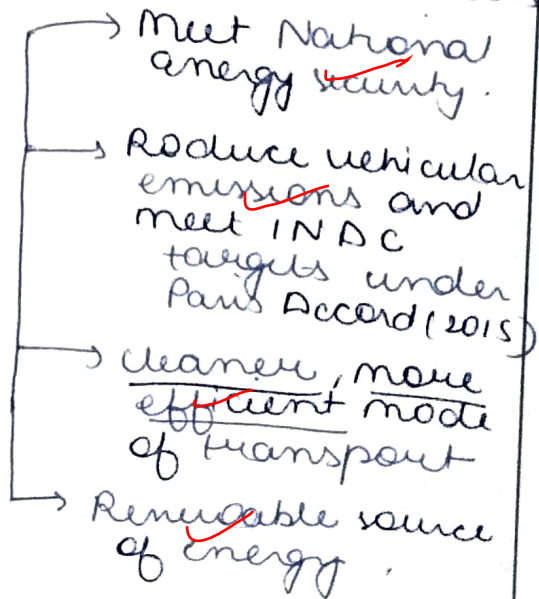 Meet National
energy security.
Reduce vehicular
emissions and
meet INDC
targets under
Paris Accord (2015)
cleaner, more
efficient mode
of transport
Renewable source
of energy.